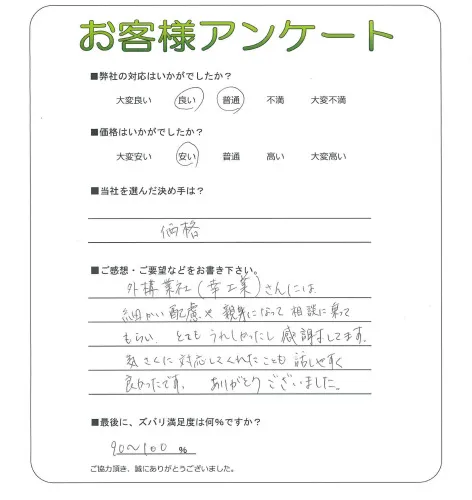 お客様アンケート
■弊社の対応はいかがでしたか？
大変良い 良い 普通 不満 大変不満
■価格はいかがでしたか？
大変安い 安い 普通 高い 大変高い
■当社を選んだ決め手は？
価格
■ご感想・ご要望などをお書き下さい。
外構業社(幸工業)さんには
細かい配慮や親身になって相談に乗って
もらい、とてもうれしかったし感謝してます。
気さくに対応してくれたことも話しやすく
良かったです。ありがとうございました。
■最後に、ズバリ満足度は何%ですか？
90〜100 %
ご協力頂き、誠にありがとうございました。